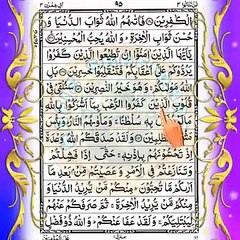 ٩٥
الْكٰفِرِيْنَ ۝ فَاٰتٰىهُمُ اللّٰهُ ثَوَابَ الدُّنْيَا وَ
حُسْنَ ثَوَابِ الْاٰخِرَةِ ؕ وَاللّٰهُ يُحِبُّ الْمُحْسِنِيْنَ ۝
يٰٓاَيُّهَا الَّذِيْنَ اٰمَنُوْٓا اِنْ تُطِيْعُوا الَّذِيْنَ كَفَرُوْا
يَرُدُّوْكُمْ عَلٰٓى اَعْقَابِكُمْ فَتَنْقَلِبُوْا خٰسِرِيْنَ ۝ بَلِ
اللّٰهُ مَوْلٰىكُمْ ۚ وَهُوَ خَيْرُ النّٰصِرِيْنَ ۝ سَنُلْقِيْ فِيْ
قُلُوْبِ الَّذِيْنَ كَفَرُوا الرُّعْبَ بِمَآ اَشْرَكُوْا بِاللّٰهِ
مَا لَمْ يُنَزِّلْ بِهٖ سُلْطٰنًا ۚ وَمَاْوٰىهُمُ النَّارُ ؕ وَبِئْسَ
مَثْوَى الظّٰلِمِيْنَ ۝ وَلَقَدْ صَدَقَكُمُ اللّٰهُ وَعْدَهٗٓ
اِذْ تَحُسُّوْنَهُمْ بِاِذْنِهٖ ۚ حَتّٰٓى اِذَا فَشِلْتُمْ
وَتَنَازَعْتُمْ فِي الْاَمْرِ وَعَصَيْتُمْ مِّنْۢ بَعْدِ مَآ
اَرٰىكُمْ مَّا تُحِبُّوْنَ ؕ مِنْكُمْ مَّنْ يُّرِيْدُ الدُّنْيَا وَ
مِنْكُمْ مَّنْ يُّرِيْدُ الْاٰخِرَةَ ۚ ثُمَّ صَرَفَكُمْ عَنْهُمْ
لِيَبْتَلِيَكُمْ ۚ وَلَقَدْ عَفَا عَنْكُمْ ؕ وَاللّٰهُ ذُوْ فَضْلٍ